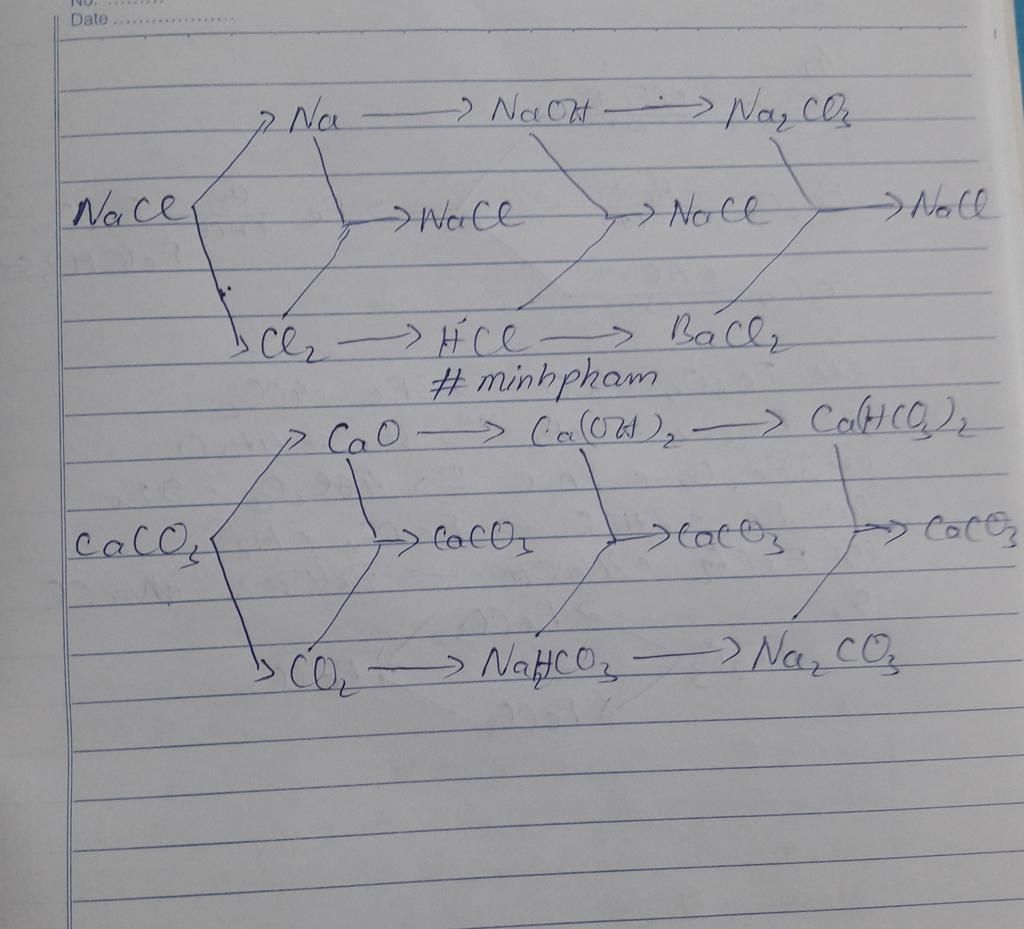 No. .........
Date ..................
Na → NaOH → Na₂CO₃
NaCl → NaCl → NaCl → NaCl
Cl₂ → HCl → BaCl₂
# minhpham
CaO → Ca(OH)₂ → Ca(HCO₃)₂
CaCO₃ → CaCO₃ → CaCO₃ → CaCO₃
CO₂ → NaHCO₃ → Na₂CO₃